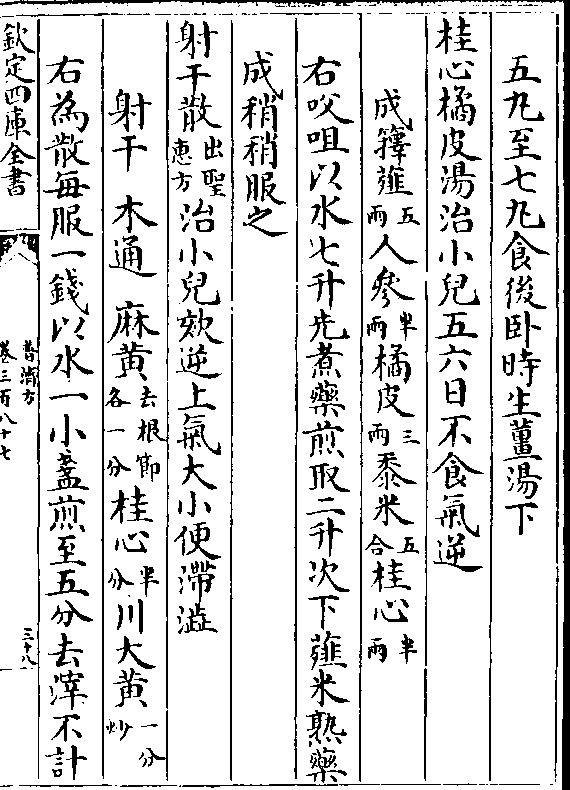 五九至七九食後卧時生薑湯下
桂心橘皮湯治小兒五六日不食氣逆
成籜薤五兩人參半兩橘皮三兩黍米五合桂心半兩
右㕮咀以水七升先煮藥煎取二升次下薤米熟藥
成稍稍服之
射干散出聖惠方治小兒欬逆上氣大小便滯澁
射干 木通 麻黄去根節各一分桂心半分川大黄一分炒
右為散每服一錢以水一小盞煎至五分去滓不計
欽定四庫全書
普濟方
卷三百八十七
三十八